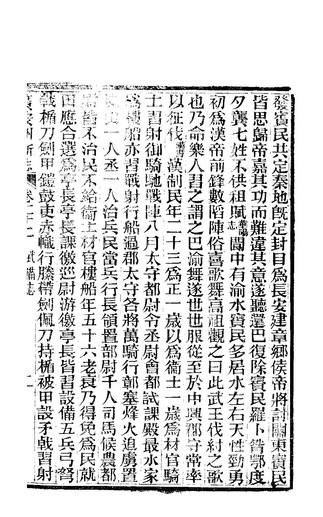 發賨民共定秦地既定封目爲長安建章鄉侯帝將討關東賨民
皆思歸帝嘉其功而難違其意遂聽還巴復除賨民羅卜昝鄂度
夕龔七姓不供租賦閬中有渝水賨民多居水左右天性勁勇
初爲漢前鋒數陷陣俗喜歌舞高祖觀之曰此武王伐紂之歌
也乃命樂人習之謂之巴渝舞遂世世服從至於中興郡守常率
以征伐漢制民年二十三爲正一歲以爲衞士一歲爲材官騎
士習射御騎馳戰陣八月太守都尉令丞尉會都試課殿最水家
爲樓船亦習戰射行船過郡太守各將萬騎行鄣塞烽火追虜置
長史一人丞一人治兵民當兵行長領置部尉千人司馬候農都
尉皆不治民不給衞士材官樓船年五十六老衰乃得免爲民就
田應合選爲亭長亭長課徼巡尉游徼亭長皆習設備五兵弓弩
戟楯刀劍甲鎧鼓吏赤幘行縢帶劍佩刀持楯被甲設矛戟習射
武備志